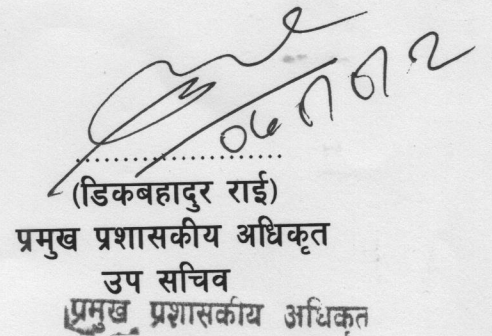 (डिकबहादुर राई)
प्रमुख प्रशासकीय अधिकृत
उप सचिव
प्रमुख प्रशासकीय अधिकृत